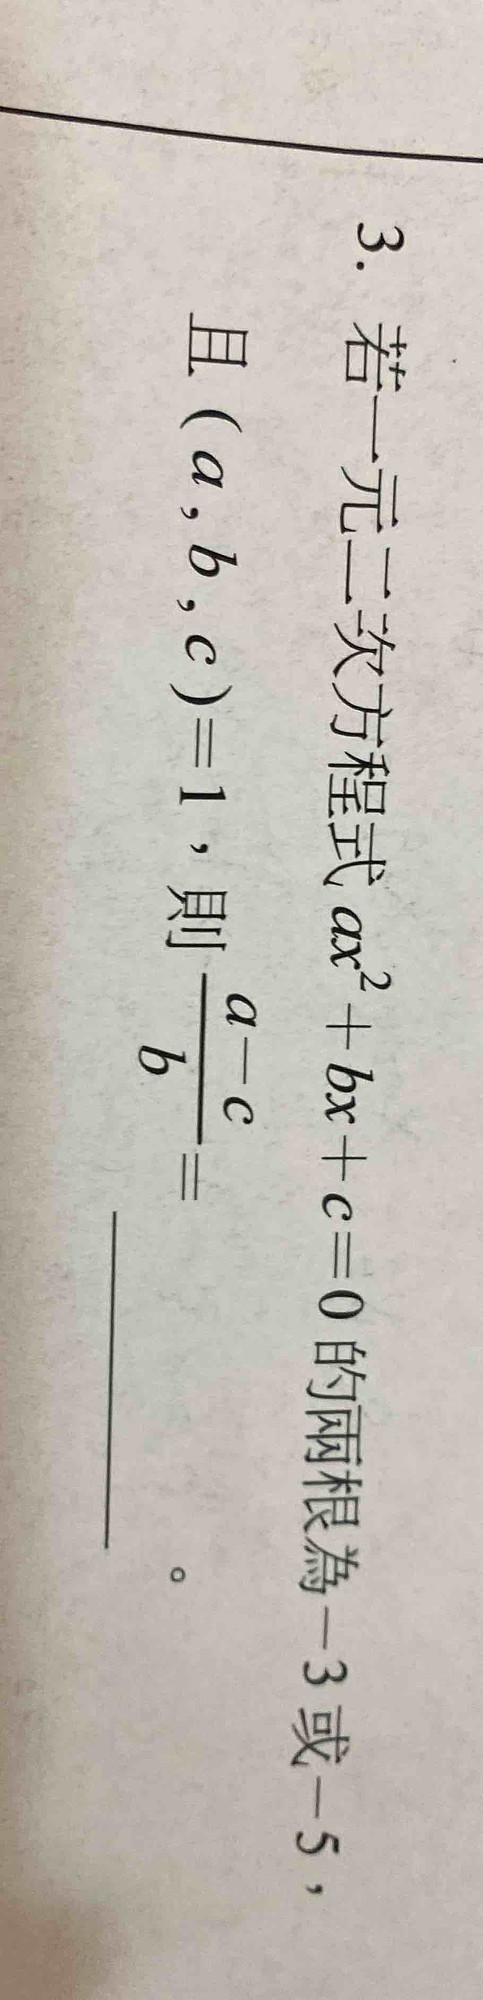 3. 若一元二次方程式 ax²+bx+c=0 的兩根為-3 或-5，
且 (a, b, c)=1，則 \frac{a-c}{b} = ______。